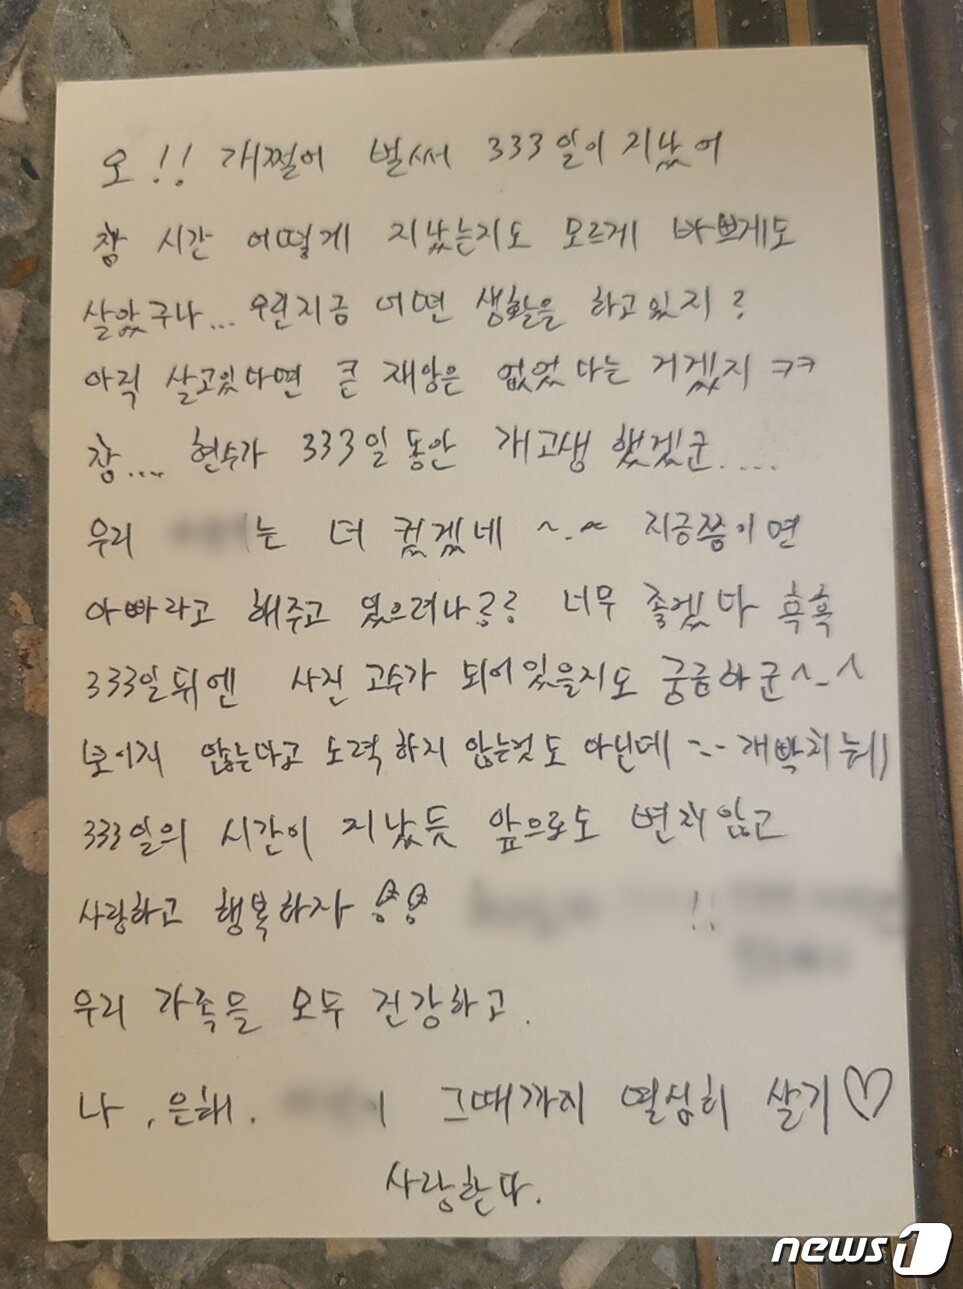 오!! 개쩔어 벌써 333일이 지났어
참 시간 어떻게 지났는지도 모르게 바쁘게도
살았구나... 우린지금 어떤 생활을 하고있지?
아직 살고있다면 큰 재앙은 없었다는 거겠지 ㅋㅋ
참.... 현수가 333일동안 개고생 했겠군.....
우리 는 더 컸겠네 ~.~ 지금쯤이면
아빠라고 해주고 있으려나?? 너무 좋겠다 흑흑
333일뒤엔 사진 고수가 되어있을지도 궁금하군^-^
보이지 않는다고 노력하지 않는것도 아닌데 개빡치뉘))
333일의 시간이 지났듯 앞으로도 변치않고
사랑하고 행복하자 !!
우리 가족들 모두 건강하고.
나, 은해. 이 그때까지 열심히 살기♡
사랑한다.
news1